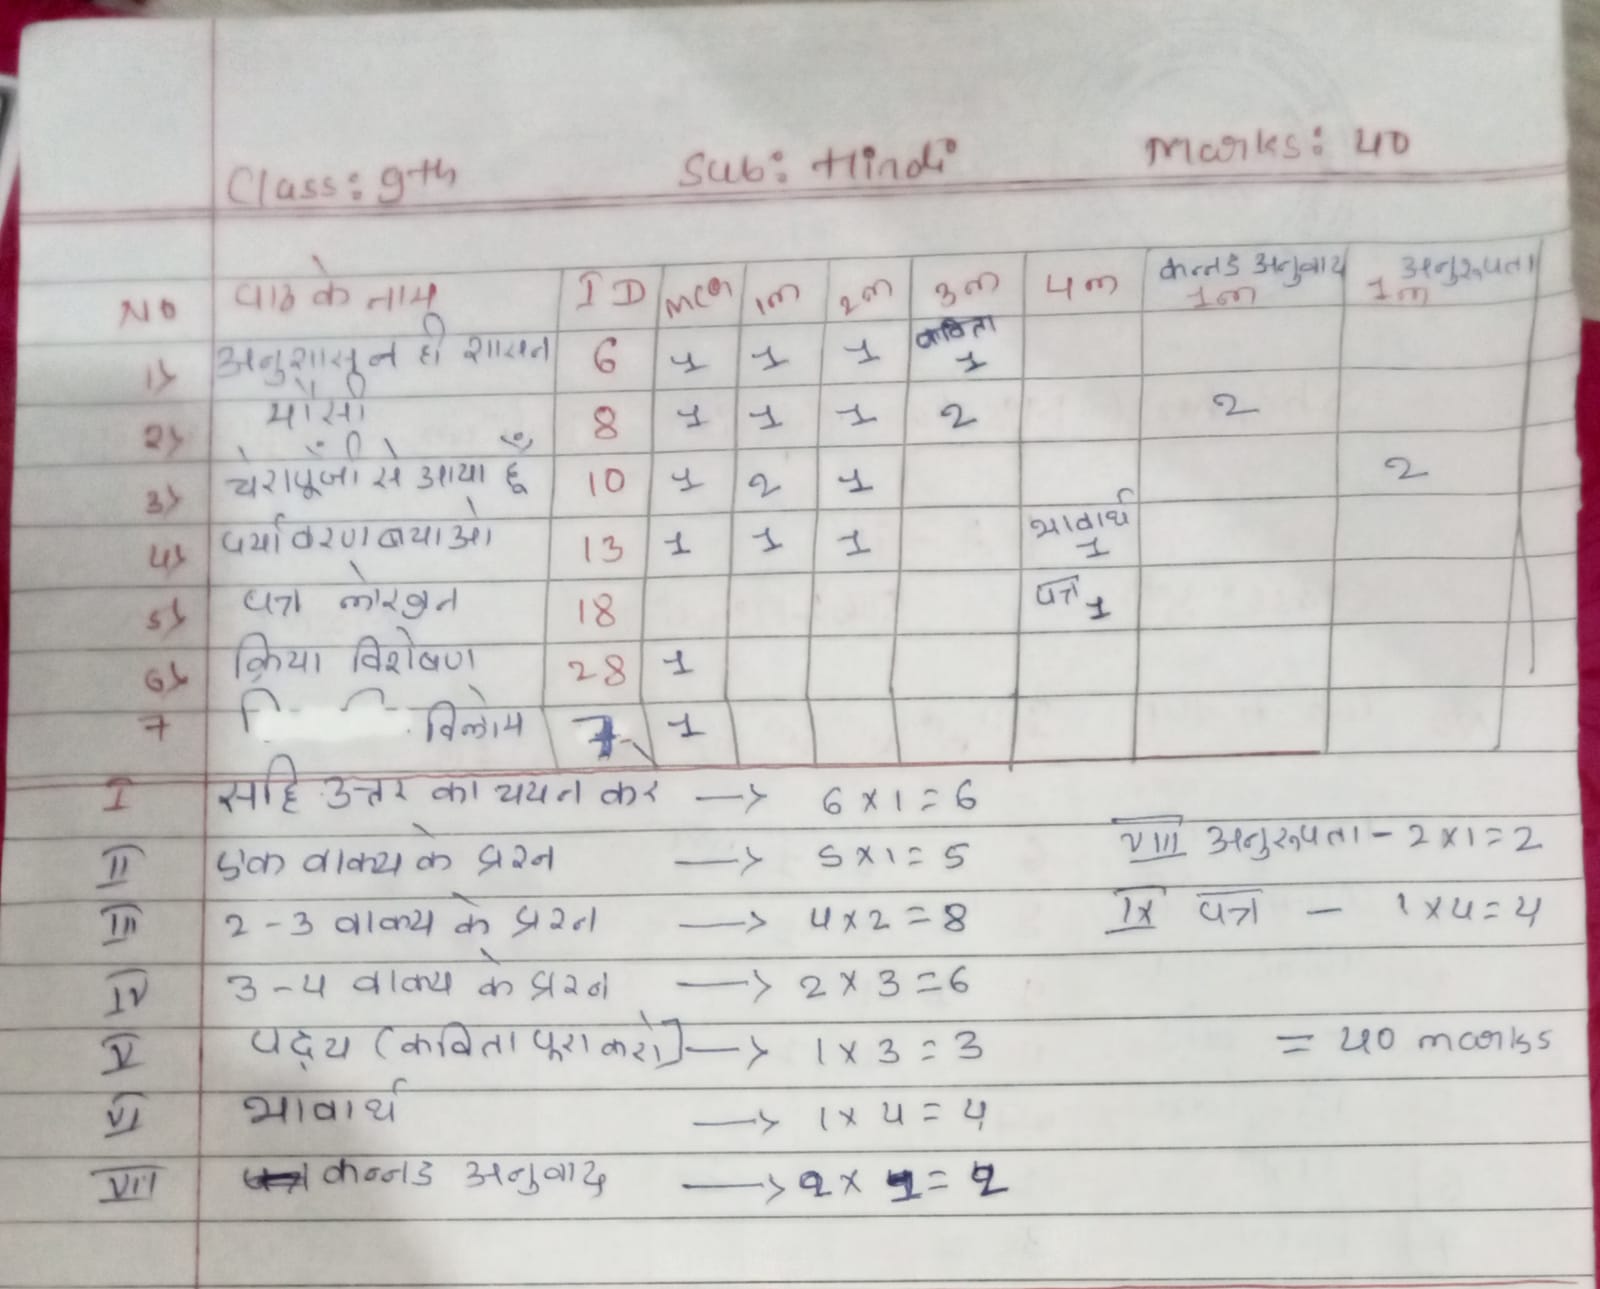 Class: 9th Sub: Hindi Marks: 40
NO पाठ के नाम ID MCQ 1m 2m 3m 4m कन्नड अनुवाद 1m अनुरूपता 1m
1) अनुशासन ही शासन 6 1 1 1 कविता 1
2) मौसी 8 1 1 1 2 2
3) चेरापूँजी से आया हूँ 10 1 2 1 2
4) पर्यावरण बचाओ 13 1 1 1 भावार्थ 1
5) पत्र लेखन 18 पत्र 1
6) क्रिया विशेषण 28 1
7 विलोम 7 1
I सहि उत्तर का चयन कर → 6 x 1 = 6
II एक वाक्य के प्रश्न → 5 x 1 = 5 VIII अनुरूपता - 2 x 1 = 2
III 2-3 वाक्य के प्रश्न → 4 x 2 = 8 IX पत्र - 1 x 4 = 4
IV 3-4 वाक्य के प्रश्न → 2 x 3 = 6
V पद्य (कविता पूरा करो] → 1 x 3 = 3 = 40 marks
VI भावार्थ → 1 x 4 = 4
VII कन्नड अनुवाद → 2 x 1 = 2